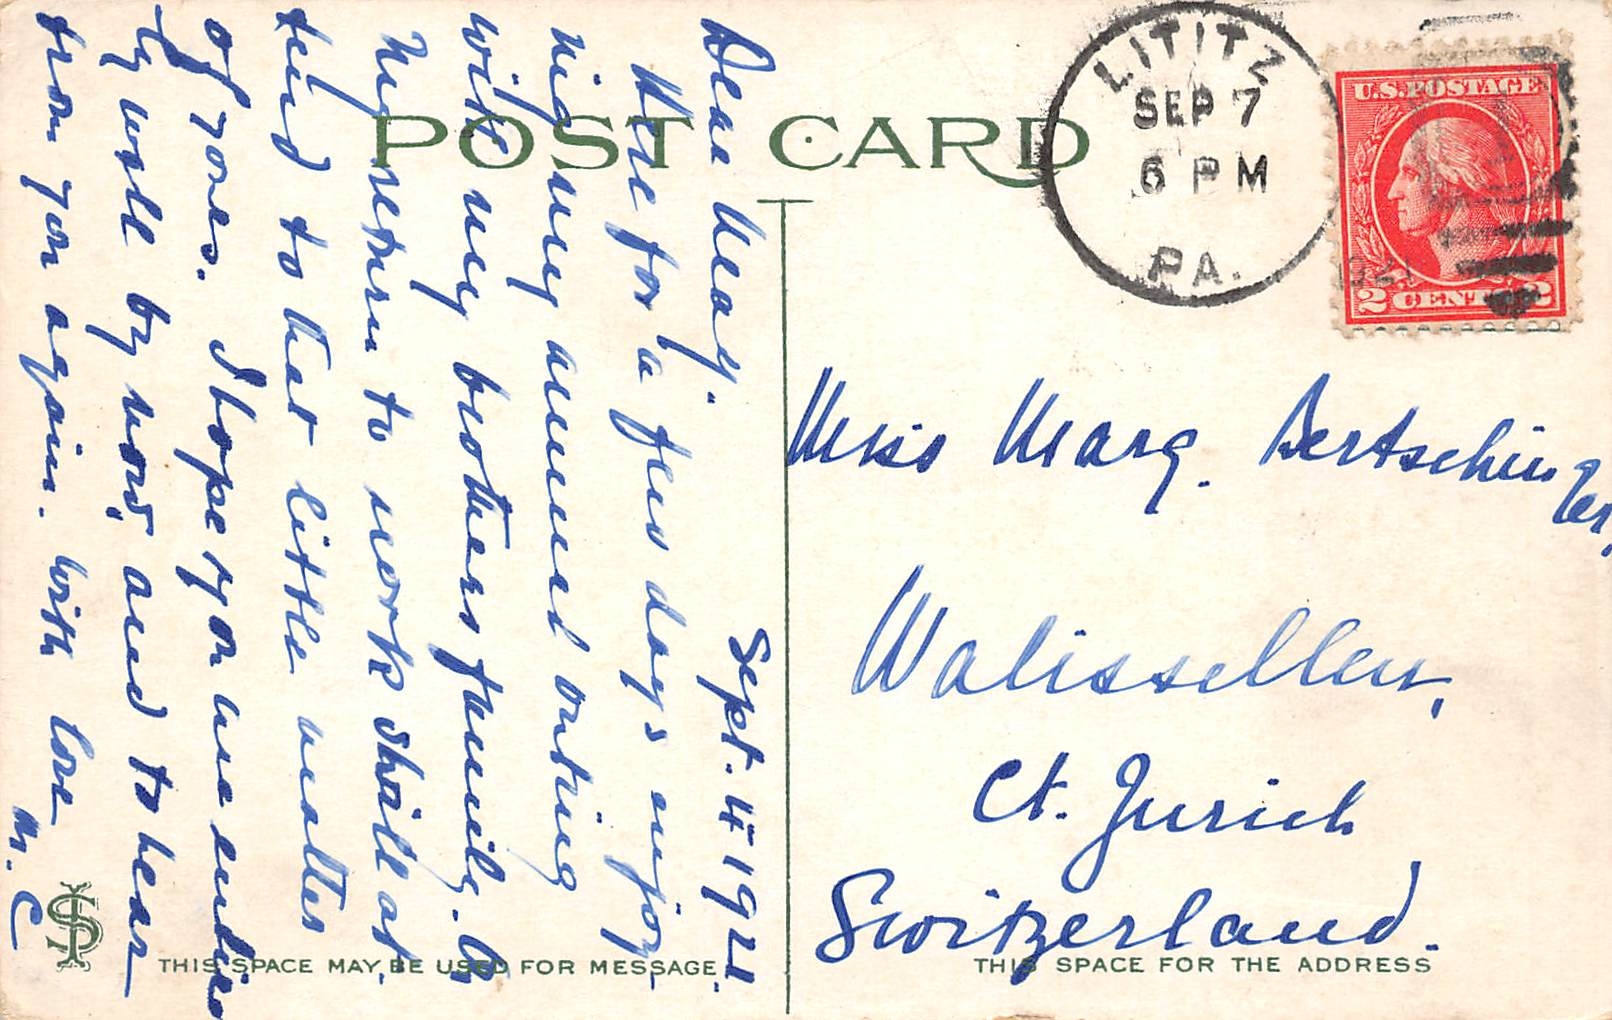 POST CARD
LITITZ
SEP 7
6 PM
PA.
U.S. POSTAGE
2 CENTS 2
Sept. 4 1921.
Dear Marg.
Here for a few days enjoy-
ing my annual outing
with my brothers family. On
my return to work shall at-
tend to that little matter
of yours. I hope you are entire-
ly well by now, and to hear
from you again. With love
M. C
Miss Marg. Bertschinger,
Walissellen,
Ct. Zurich
Switzerland.
THIS SPACE MAY BE USED FOR MESSAGE.
THIS SPACE FOR THE ADDRESS